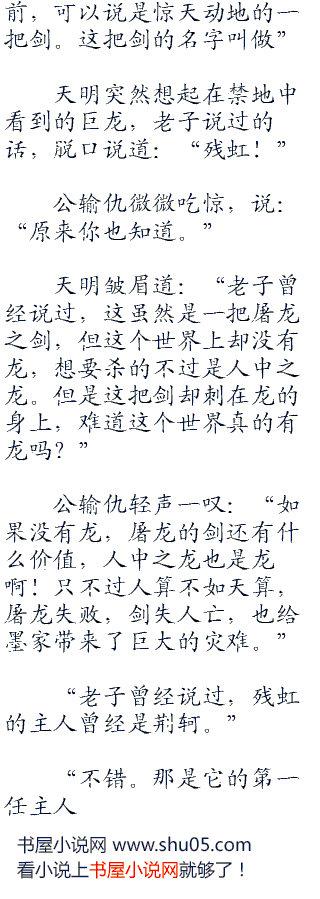 前，可以说是惊天动地的一
把剑。这把剑的名字叫做”
天明突然想起在禁地中
看到的巨龙，老子说过的
话，脱口说道：“残虹！”
公输仇微微吃惊，说：
“原来你也知道。”
天明皱眉道：“老子曾
经说过，这虽然是一把屠龙
之剑，但这个世界上却没有
龙，想要杀的不过是人中之
龙。但是这把剑却刺在龙的
身上，难道这个世界真的有
龙吗？”
公输仇轻声一叹：“如
果没有龙，屠龙的剑还有什
么价值，人中之龙也是龙
啊！只不过人算不如天算，
屠龙失败，剑失人亡，也给
墨家带来了巨大的灾难。”
“老子曾经说过，残虹
的主人曾经是荆轲。”
“不错。那是它的第一
任主人
书屋小说网 www.shu05.com
看小说上书屋小说网就够了！